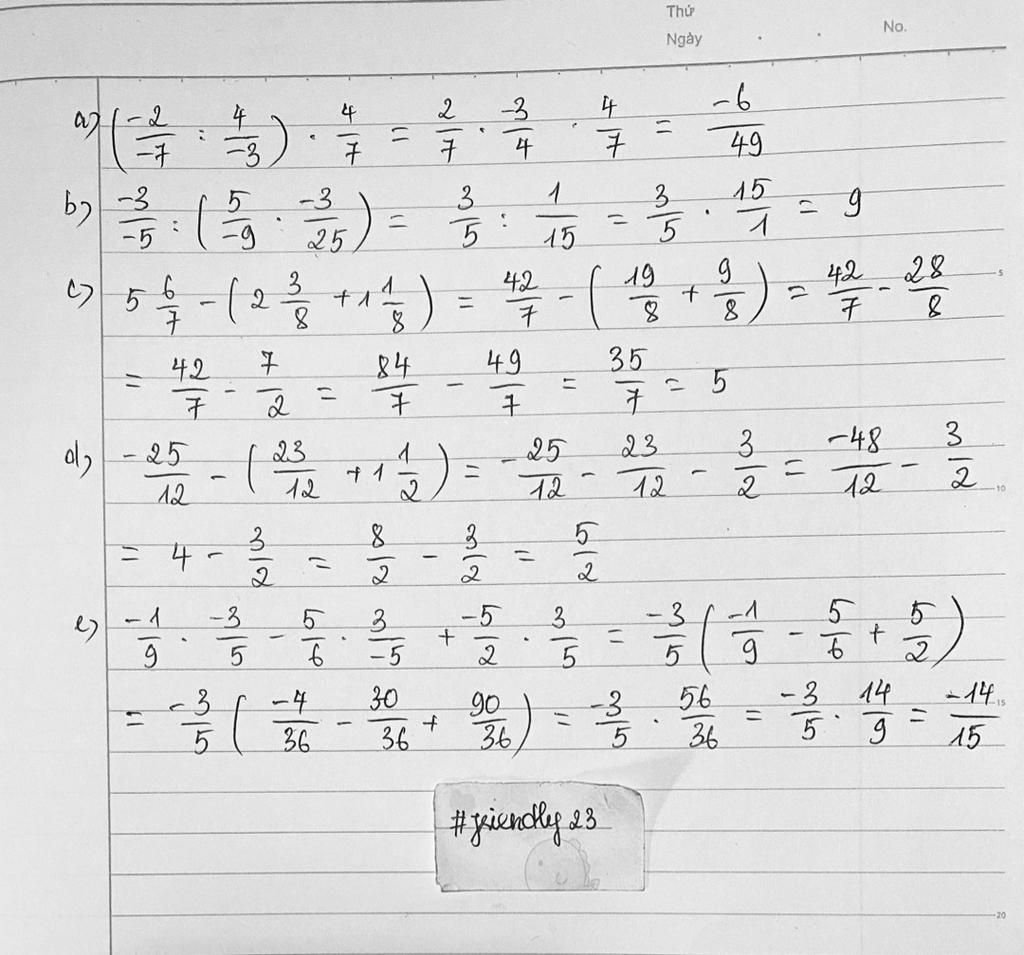 Thứ
Ngày . . No.
a) (-2/-7 : 4/-3) . 4/7 = 2/7 . -3/4 . 4/7 = -6/49
b) -3/-5 : (5/-9 . -3/25) = 3/5 : 1/15 = 3/5 . 15/1 = 9
c) 5 6/7 - (2 3/8 + 1 1/8) = 42/7 - (19/8 + 9/8) = 42/7 - 28/8
5
= 42/7 - 7/2 = 84/7 - 49/7 = 35/7 = 5
d) -25/12 - (23/12 + 1 1/2) = -25/12 - 23/12 - 3/2 = -48/12 - 3/2
10
= 4 - 3/2 = 8/2 - 3/2 = 5/2
e) -1/9 . -3/5 - 5/6 . 3/-5 + -5/2 . 3/5 = -3/5 (-1/9 - 5/6 + 5/2)
= -3/5 (-4/36 - 30/36 + 90/36) = -3/5 . 56/36 = -3/5 . 14/9 = -14/15
15
#friendly 23
20